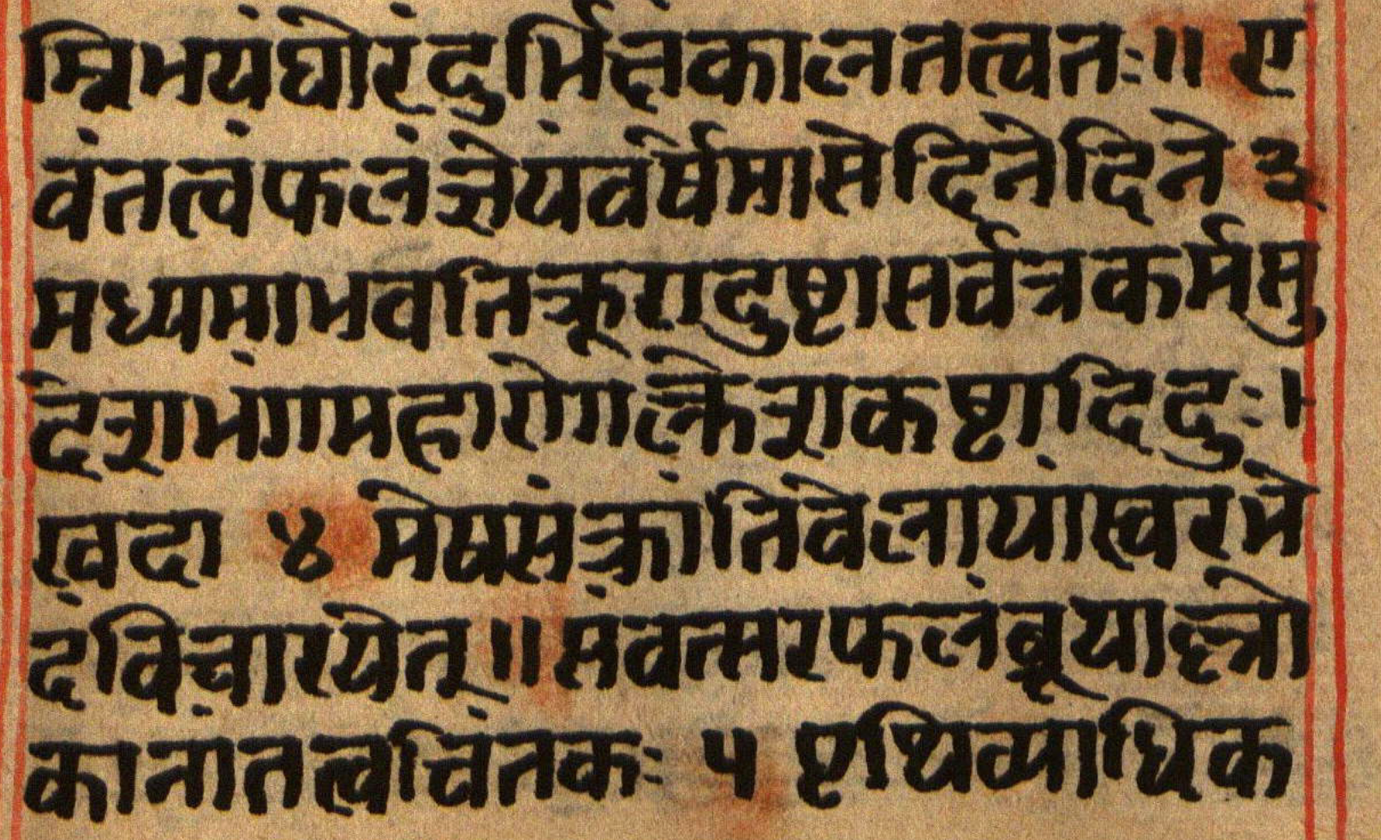 म्निभयंघोरंदुर्भिक्षकालतत्वतः॥ ए
वंतत्वंफलंज्ञेयंवर्षेमासेदिनेदिने ३
मध्यमाभवतिक्रूरादुष्टासर्वत्रकर्मसु
देशभंगमहारोगक्लेशकष्टादिदुः।
खदा ४ मेषसंक्रांतिवेलायांस्वरभे
दंविचारयेत्॥संवत्सरफलंब्रूयाल्लो
कानातत्वचिंतकः ५ पृथिव्याधिक